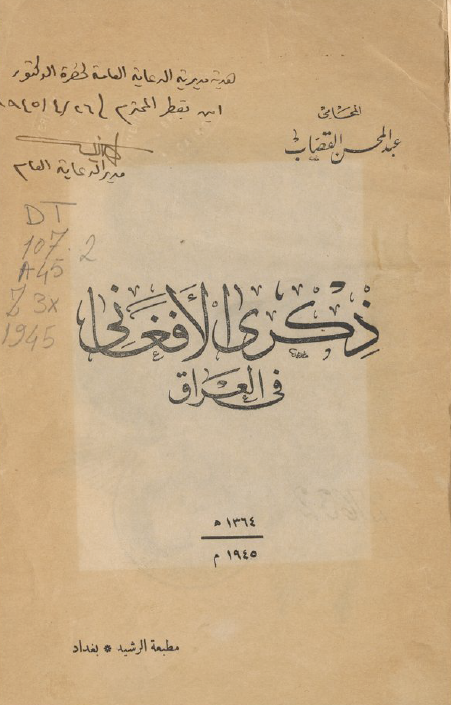 هدية مديرية الدعاية العامة لحضرة الدكتور
امين بقطر المحترم ١٩٤٥/٤/٢٦
مدير الدعاية العام
المحامي
عبد المحسن القصاب
DT
107.2
A45
Z3x
1945
ذكرى الأفغاني
في العراق
١٣٦٤ هـ
١٩٤٥ م
مطبعة الرشيد * بغداد